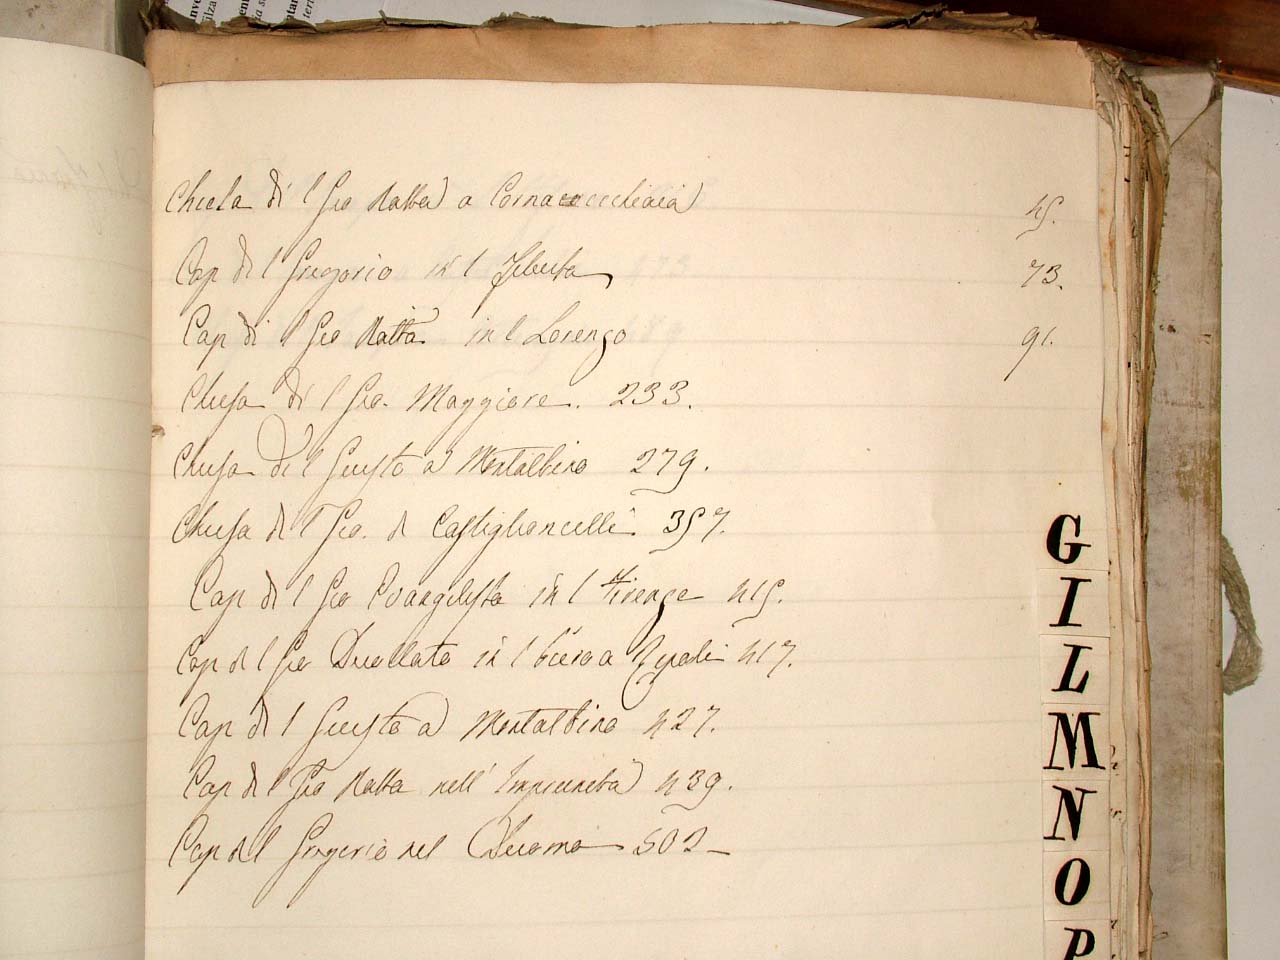 Chiesa di S Gio Batta a Cornacchiaia 45.
Cap di S Gregorio in S
Cap di S Gio Batta in S Lorenzo 91.
73.
Chiesa di S Gio. Maggiore. 233.
Chiesa di S Giusto a Montalbino 279.
Chiesa di S Gio. di Castiglioncelli 357.
Cap di S Gio Evangelista in S Firenze 415.
Cap di S Gio Decollato in S Piero a 417.
Cap di S Giusto a Montalbino 427.
Cap di S Gio Batta nell' Impruneta 439.
Cap di S Gregorio nel Duomo 502
G
I
L
M
N
O
P